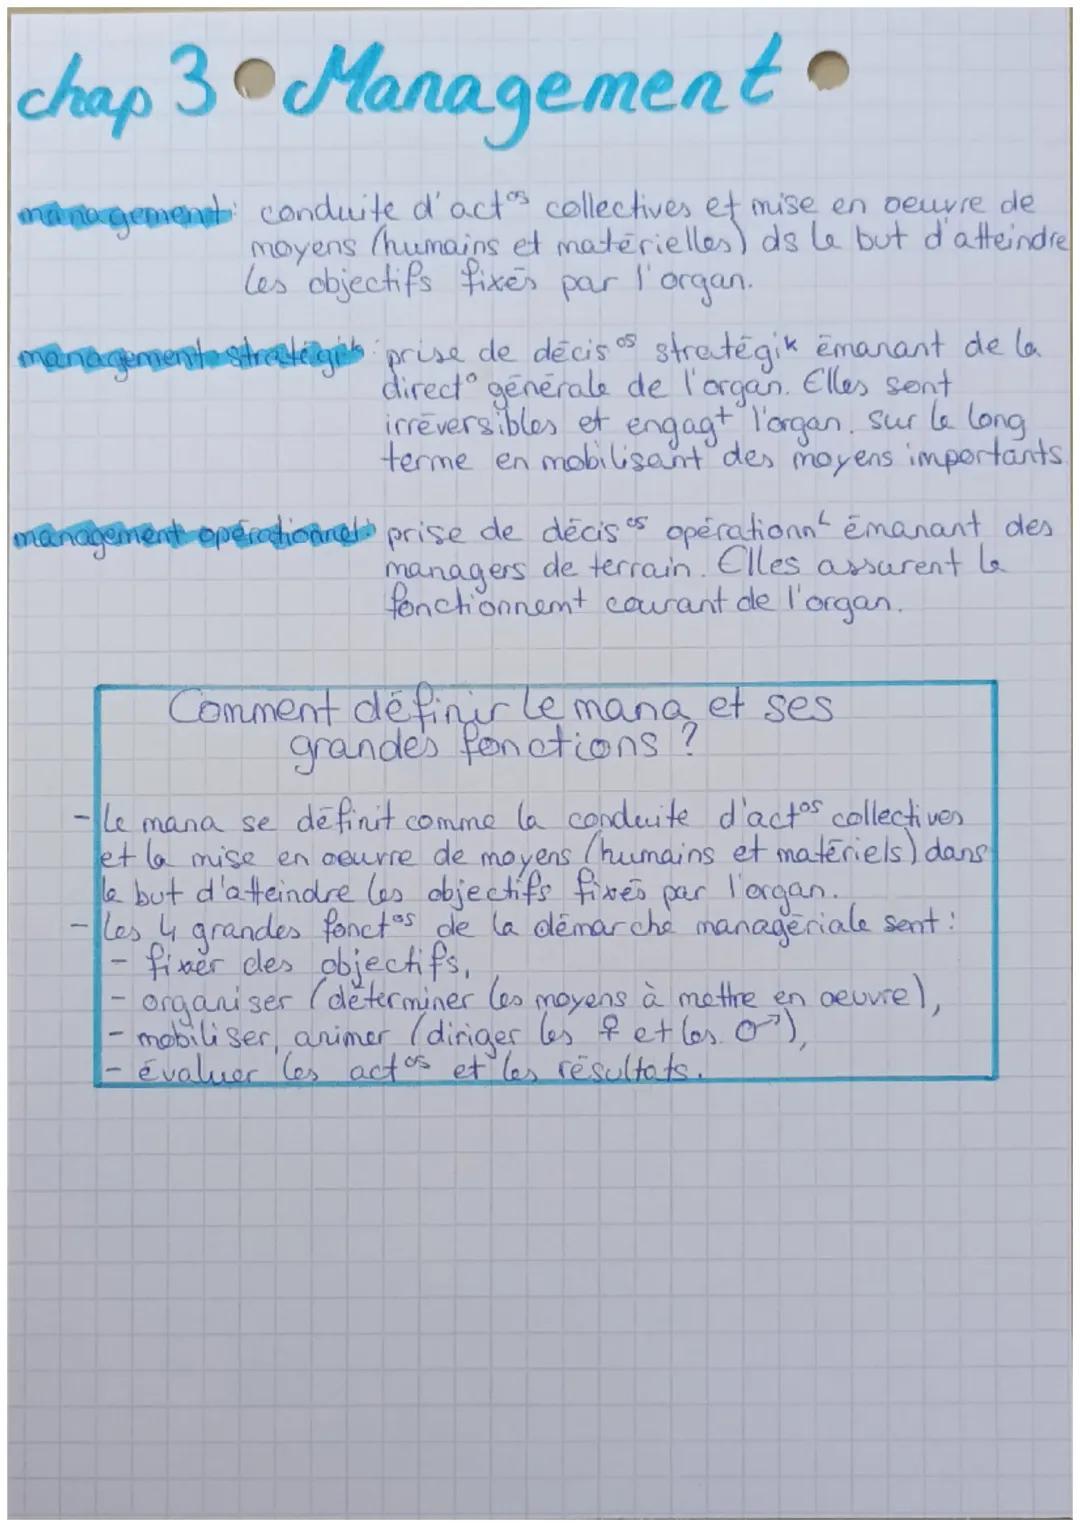 chap 3 Management
management : conduite d'act°s collectives et mise en oeuvre de
moyens (humains et matérielles) ds le but d'atteindre
les objectifs fixés par l'organ.
management stratégik : prise de décis°s stratégik émanant de la
direct° générale de l'organ. Elles sont
irréversibles et engagt l'organ. sur le long
terme en mobilisant des moyens importants.
management opérationnel : prise de décis°s opérationnL émanant des
managers de terrain. Elles assurent le
fonctionnemt courant de l'organ.
Comment définir le mana et ses
grandes fonctions ?
- Le mana se définit comme la conduite d'act°s collectives
et la mise en oeuvre de moyens (humains et matériels) dans
le but d'atteindre les objectifs fixés par l'organ.
- Les 4 grandes fonct°s de la démarche managériale sont :
- fixer des objectifs,
- organiser (déterminer les moyens à mettre en oeuvre),
- mobiliser, animer (diriger les ♀ et les ♂),
- évaluer les act°s et les résultats.